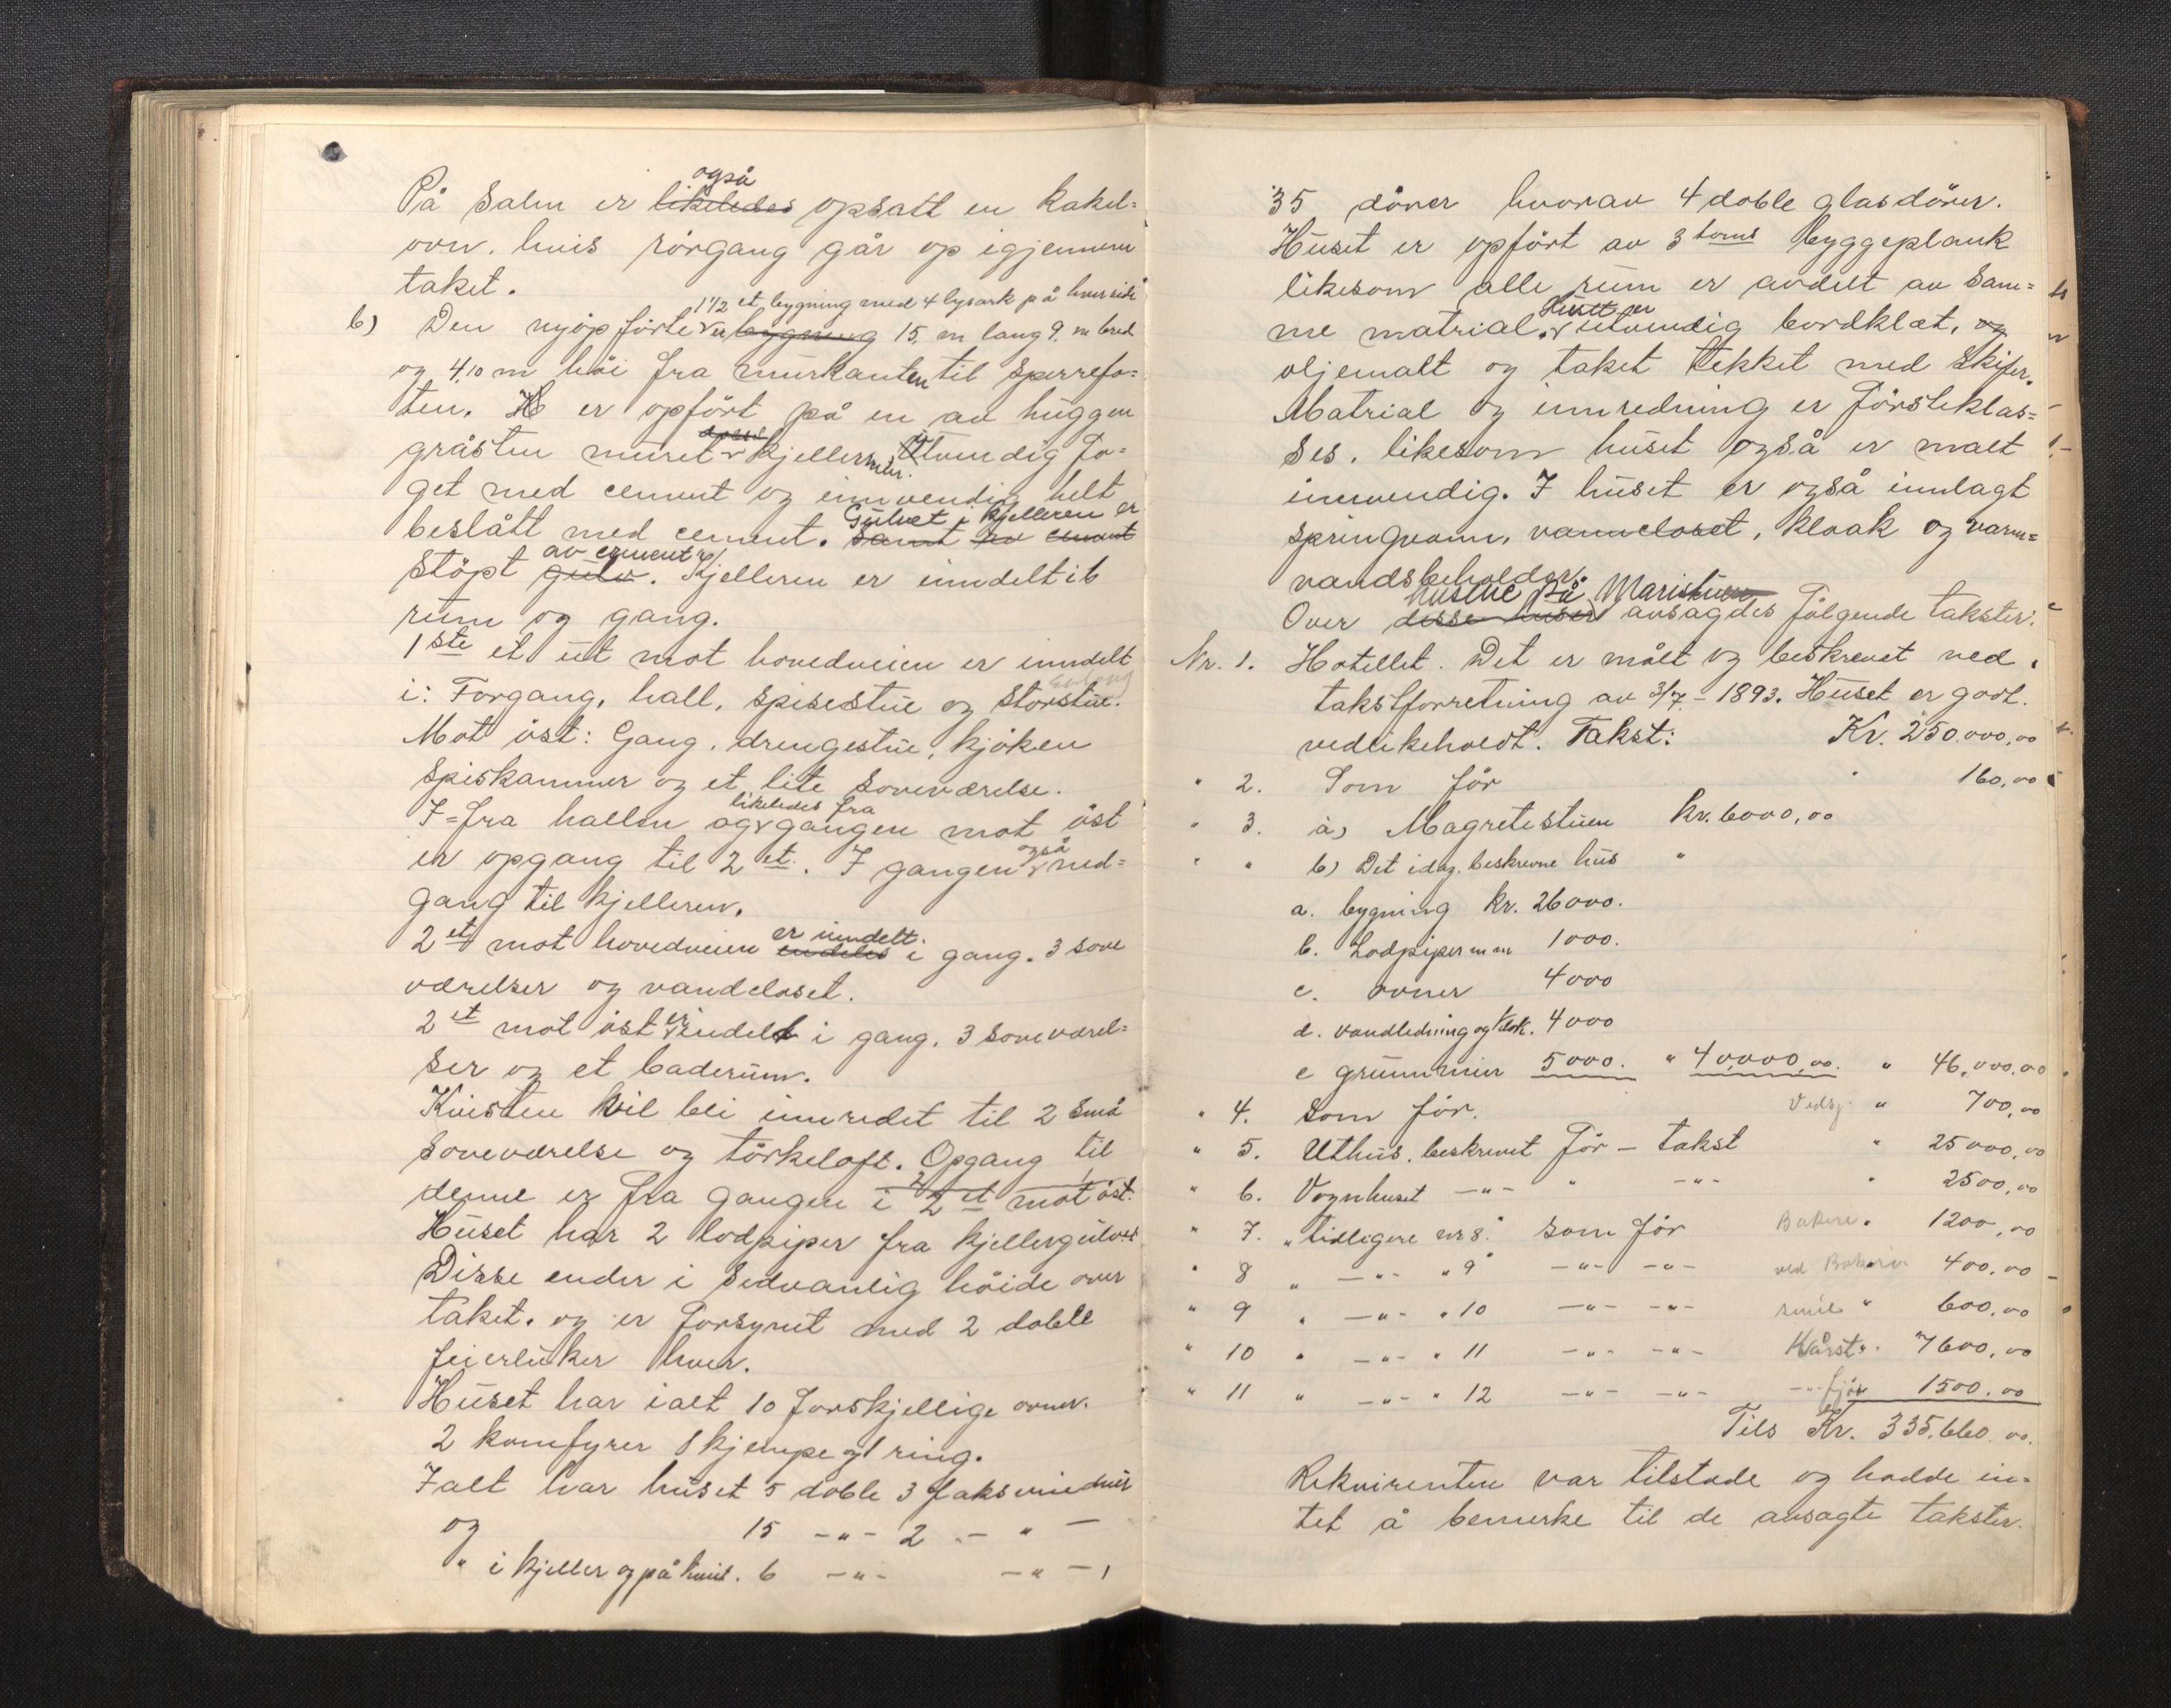 På Salen er likeledes også opsatt en kakel=
ovn. hvis rörgang går op igjennem
taket.
b) Den nyopförte er bygning 1 1/2 et. bygning med 4 lysark på hver side 15. m lang 9. m bred
og 4,10 m höi fra murkanten til sperrefo=
ten. H er opfört på en av huggen
gråsten muret kjellermur. Utvendig fu=
get med cement og innvendig helt
beslått med cement. Samt av cement Gulvet i kjelleren er
stöpt gulv. av cement Kjelleren er inndelt i 6
rum og gang.
1ste et ut mot hovedveien er inndelt
i: Forgang, hall, spisestue og storstue.
Mot öst: Gang, drengestue, kjöken
spiskammer og et lite soveværelse.
I=fra hallen og likeledes fra gangen mot öst
er opgang til 2 et. I gangen også ned=
gang til kjelleren.
2 et mot hovedveien endeles er inndelt i gang. 3 sove
værelser og vandcloset.
2 et mot öst er indelt i gang. 3 soveværel=
ser og et baderum.
Kvisten vil bli innredet til 2 små
soveværelse og törkeloft. Opgang til
denne er fra gangen i 2 et mot öst.
Huset har 2 lodpiper fra kjellergulvet
Disse ender i sedvanlig höide over
taket. og er forsynet med 2 doble
feierluker hver.
Huset har ialt 10 forskjellige ovner.
2 komfyrer 1 kjempe og 1 ring.
Ialt har huset 5 doble 3 faks vinduer
og 15 -"- 2 - " -
" i kjeller og på kvist. 6 -"- -"- 1
35 dörer hvorav 4 doble glasdörer.
Huset er opfört av 3 toms byggeplank
likesom alle rum er avdelt av sam=
me matrial. Huset er utvendig bordklæt, og
oljemalt og taket tekket med skifer.
Matrial og innredning er förstekłas=
ses. likesom huset også er malt
innvendig. I huset er også innlagt
springvann, vanncloset, kloak og varm=
vandsbeholder.
Over disse huser husene på Maristuen avsagdes fölgende takster:
Nr. 1. Hotellet. Det er målt og beskrevet ved
takstforretning av 3/7 - 1893. Huset er godt.
vedlikeholdt. Takst: Kr. 250.000,00
" 2. Som för " 160,00
" 3. a) Magretestuen Kr. 6000,00
" " b) Det idag beskrevne hus "
a. bygning Kr. 26000.
b. Lodpiper m m 1000.
c. ovner 4000
d. vandledning og klok. 4000
e grunnmur 5000. " 40,000,00. " 46,000,00
" 4. Som för. Vedsj. " 700,00
" 5. Uthus. beskrevet för - takst " 25000,00
" 6. Vognhuset -"- " -"- " 2500,00
" 7. "tidligere nr 8." som för Bakeri " 1200,00
" 8 " -"- " 9" -"- -"- ved Bakeri " 400,00
" 9 " -"- " 10 -"- -"- smie " 600,00
" 10 " -"- " 11 -"- -"- Kårst. " 7600,00
" 11 " -"- " 12 -"- -"- -"- fjös 1500,00
Tils Kr. 335,660.00.
Rekvirenten var tilstede og hadde in=
tet å bemerke til de avsagte takster.